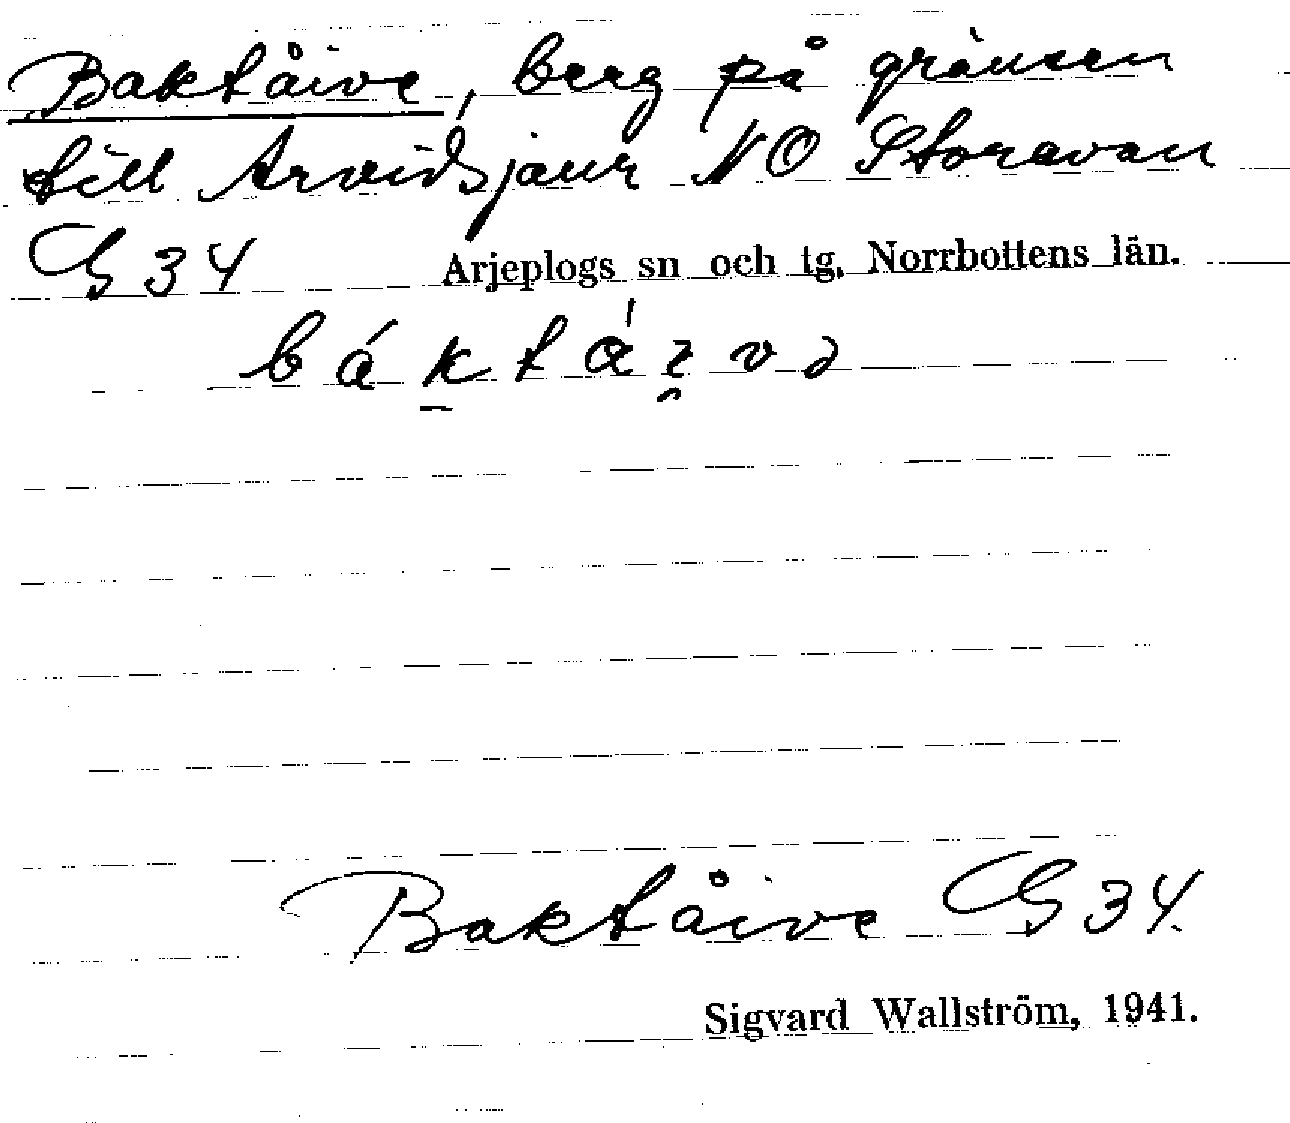 Baktåive, berg på gränsen
till Arvidsjaur NO Storavan
G 34 Arjeplogs sn och tg. Norrbottens län.
Baktåive G 34.
Sigvard Wallström, 1941.